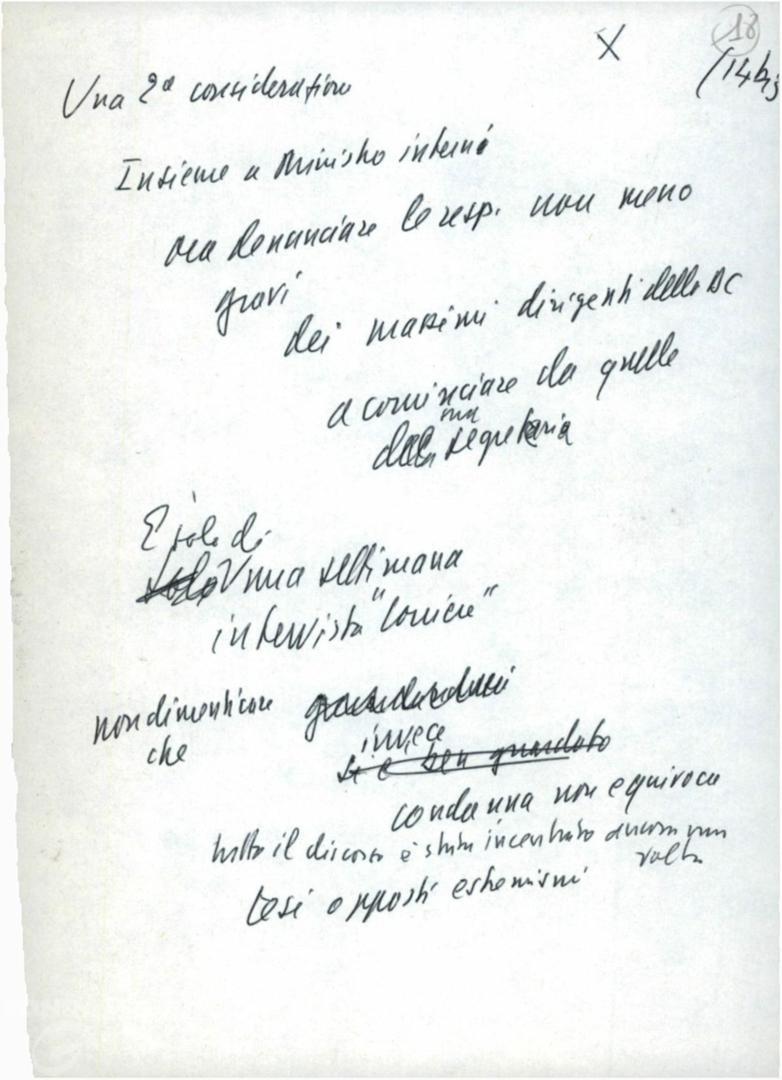 X
18
(14 bis
Una 2ª considerazione
Insieme a Ministro interni
ora denunciare le resp. non meno
gravi
dei massimi dirigenti della DC
a cominciare da quelle
della segreteria
E solo di
solo Una settimana
intervista "Corriere"
non dimenticare
che
invece
si è ben guardato
condanna non equivoca
tutto il discorso è stato incentrato ancora una
volta
tesi opposti estremismi